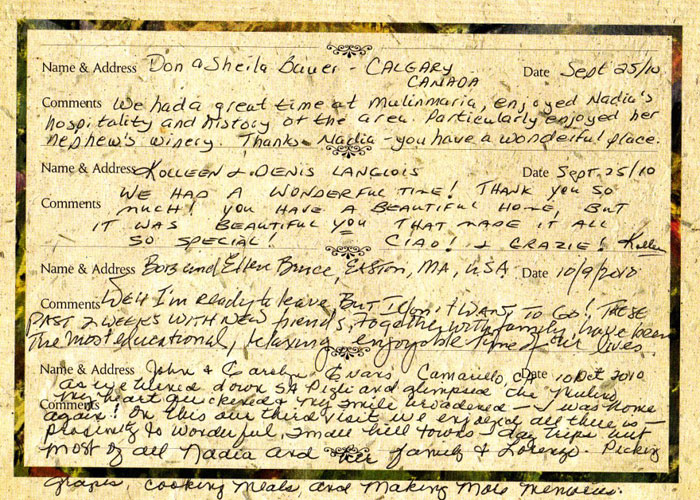 Name & Address Don & Sheila Bauer - CALGARY
CANADA
Date Sept 25/10
Comments We had a great time at Mulinmaria, enjoyed Nadia's
hospitality and history of the area. Particularly enjoyed her
nephew's winery. Thanks Nadia - you have a wonderful place.
Name & Address KOLLEEN & DENIS LANGLOIS Date Sept. 25/10
WE HAD A WONDERFUL TIME! THANK YOU SO
Comments MUCH! YOU HAVE A BEAUTIFUL HOME, BUT
IT WAS BEAUTIFUL YOU THAT MADE IT ALL
SO SPECIAL! CIAO! & GRAZIE! Kolleen
Name & Address Bob and Ellen Bruce, Easton, MA, USA Date 10/9/2010
Comments Well I'm ready to leave BUT I don't WANT TO GO! THESE
PAST 2 WEEKS WITH NEW friends, together with family, have been
the most educational, relaxing enjoyable time of our lives.
Name & Address John & Carolyn Evans Camarillo, CA Date 10 Oct 2010
As we turned down and glimpsed the Mulino
Comments my heart quickened & my smile broadened - I was home
again! On this our third visit we enjoyed all there is -
proximity to wonderful, small hill towns - day trips but
most of all Nadia and her family & Lorenzo. Picking
grapes, cooking meals, and making more memories.